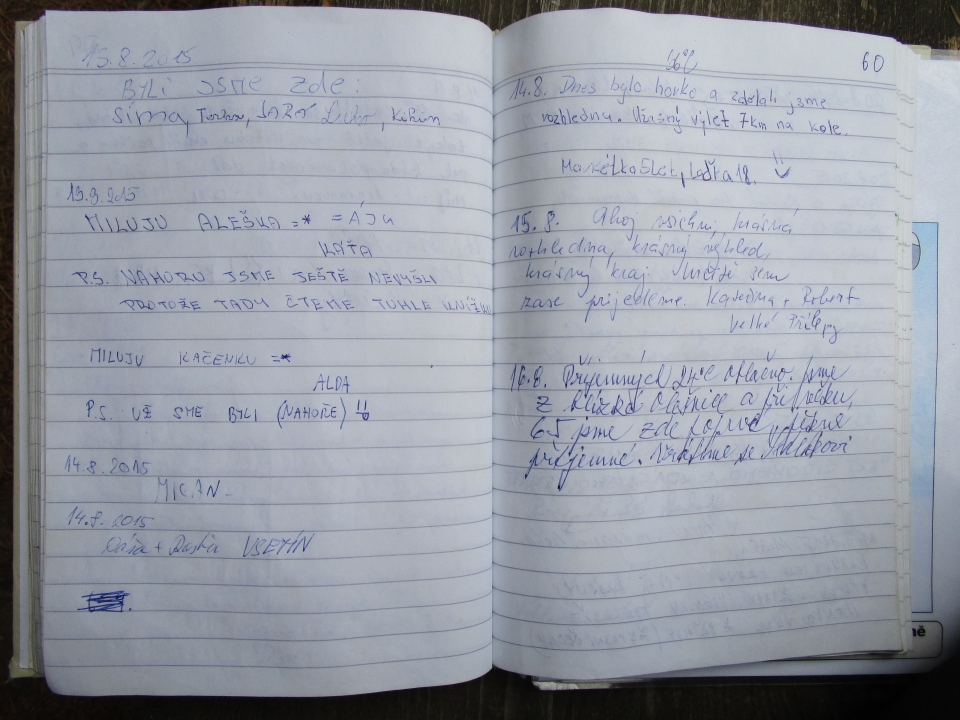 13.8.2015
BYLI JSME ZDE:
Sima, JARČA
13.8.2015
MILUJU ALEŠKA =* = ÁJU
KÁŤA
P.S. NAHORU JSME JEŠTĚ NEVYŠLI
PROTOŽE TADY ČTEME TUHLE KNÍŽKU
MILUJU KAČENKU =*
ALDA
P.S. UŽ SME BYLI (NAHOŘE) !!
14.8.2015
MILAN
14.8.2015
VSETÍN
36°C
60
14.8. Dnes bylo horko a zdolali jsme
rozhlednu. Úžasný výlet 7km na kole.
Markétka 5let,
15.8. Ahoj všichni, krásná
rozhledina, krásný výhled,
krásný kraj. Určitě sem
zase přijedeme. Kateřina + Robert
Velké Přílepy
16.8. Příjemných oblačno. Jsme
z blízké Olešnice a
65 jsme zde poprvé, pěkné
příjemné.
ně